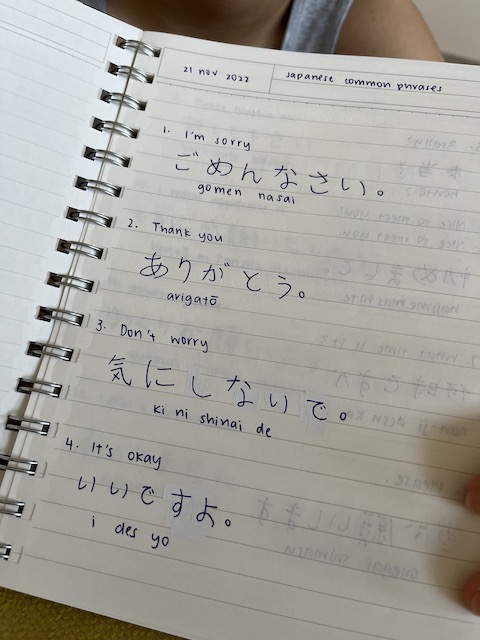 21 nov 2022
japanese common phrases
1. I'm sorry
ごめんなさい。
gomen nasai
2. Thank you
ありがとう。
arigatō
3. Don't worry
気にしないで。
ki ni shinai de
4. It's okay
いいですよ。
i des yo